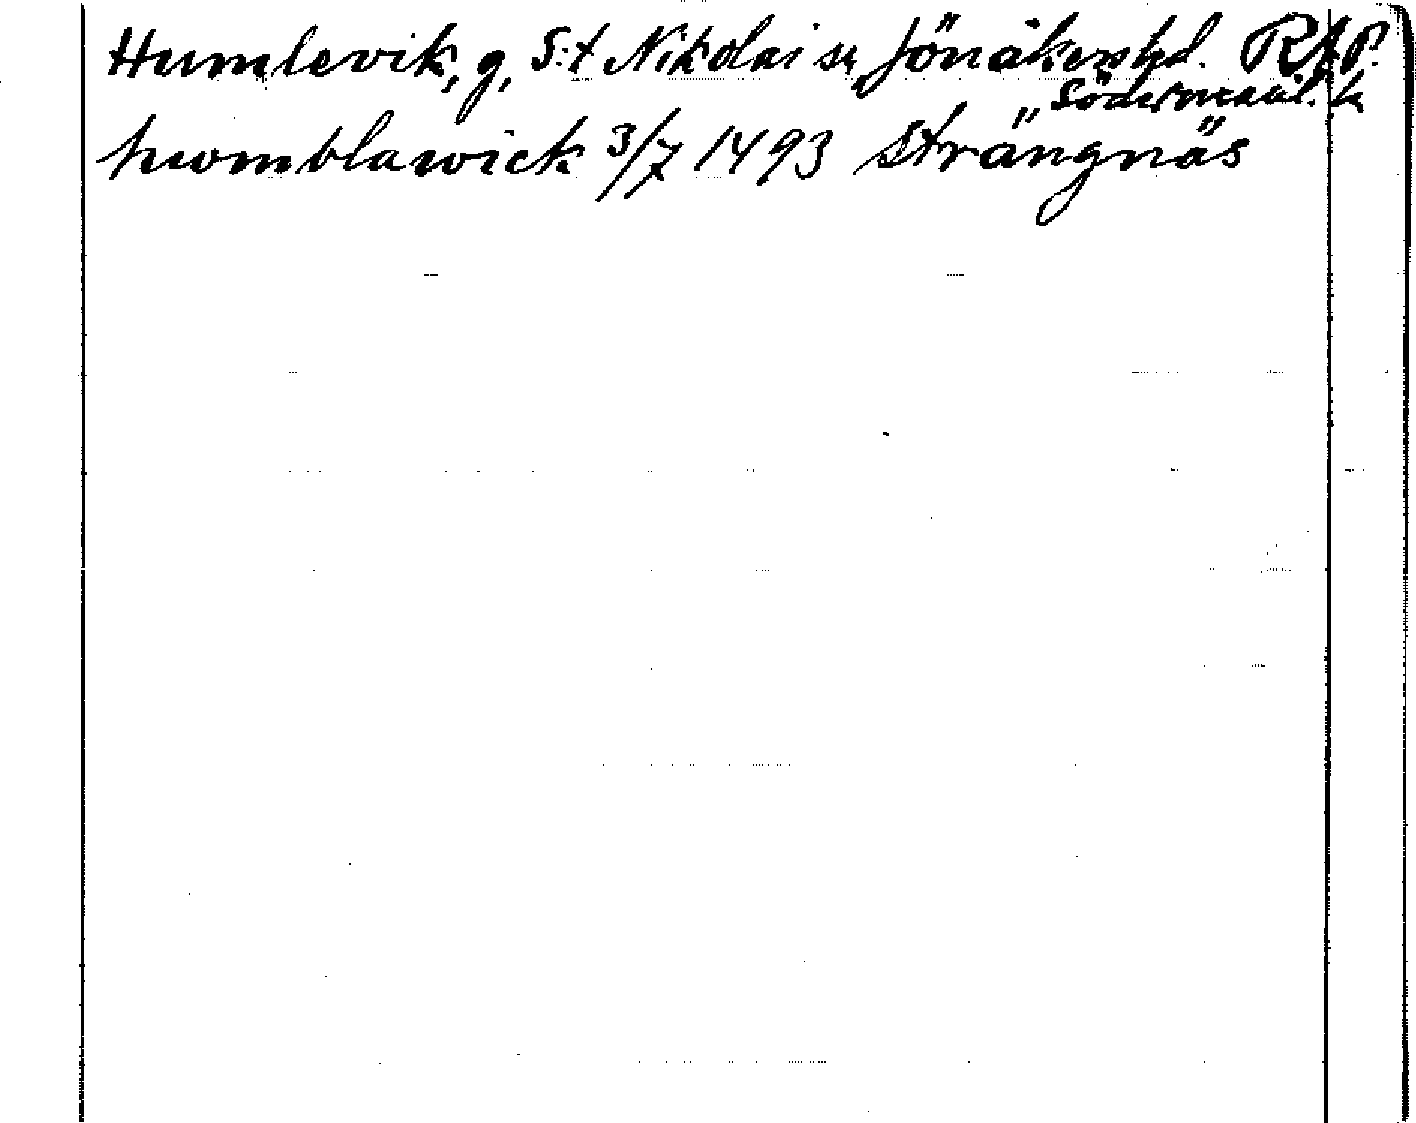 Humlevik, g, S:t Nikolai sn, Jönåkers hd. RAP.
Södermanl. l.
hwomblawick 3/7 1493 Strängnäs